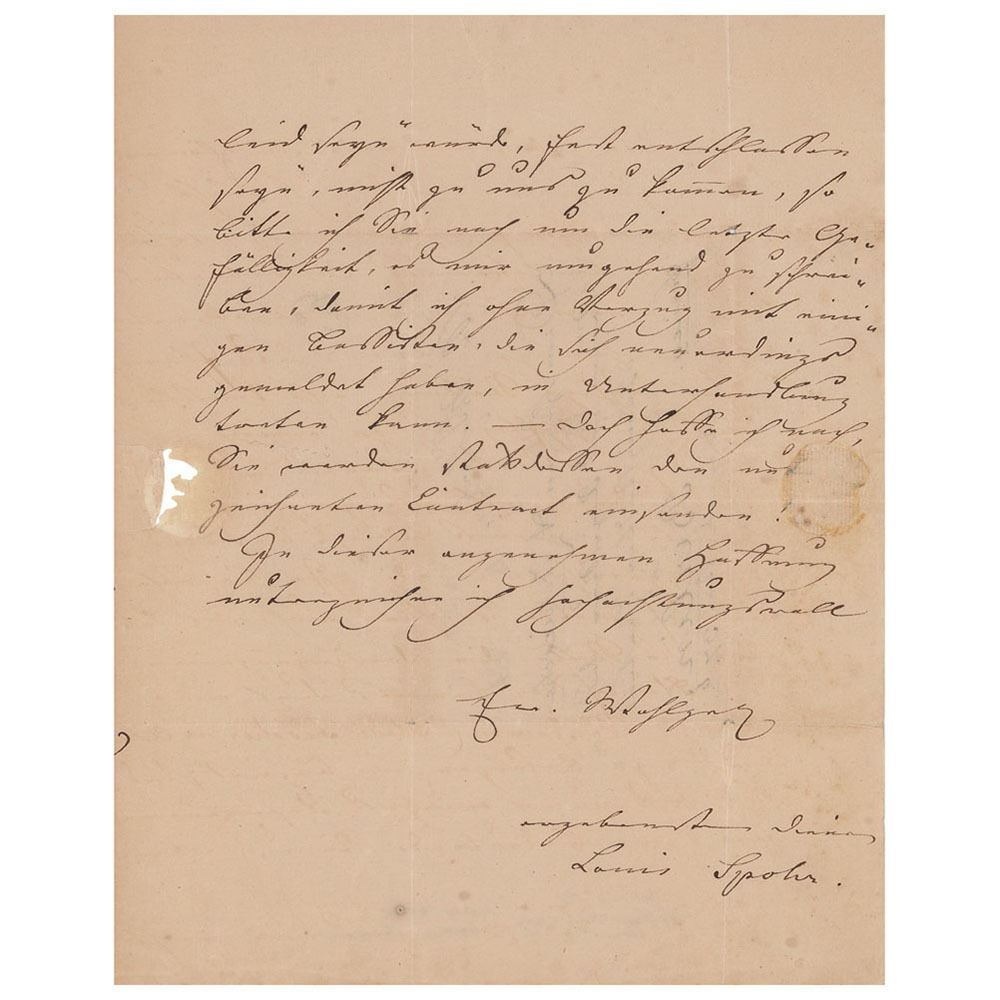 leid seyn würde, fest entschlossen
seyn, nicht zu uns zu kommen, so
bitte ich Sie noch um die letzte Ge-
fälligkeit, es mir umgehend zu schrei-
ben, damit ich ohne Verzug mit eini-
gen Bassisten, die sich neuerdings
gemeldet haben, in Unterhandlung
treten kann. — Doch hoffe ich noch,
Sie werden stattdessen den un
zeichneten Contract einsenden!
In dieser angenehmen Hoffnung
unterzeichne ich hochachtungsvoll
Ew. Wohlgeb
ergebenster Diener
Louis Spohr.